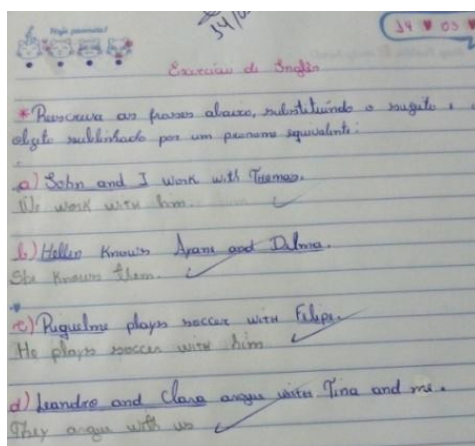 Hoje
34/
14 ♥ 03 ♥
Exercício de Inglês
*Reescreva as frases abaixo, substituindo o sujeito e
objeto sublinhado por um pronome equivalente:
a) John and I work with Thomas.
We work with him.
b) Hellen Knows Ayane and Dilma.
She knows them.
c) Riquelme plays soccer with Felipe.
He plays soccer with him
d) Leandro and Clara argue with Tina and me.
They argue with us